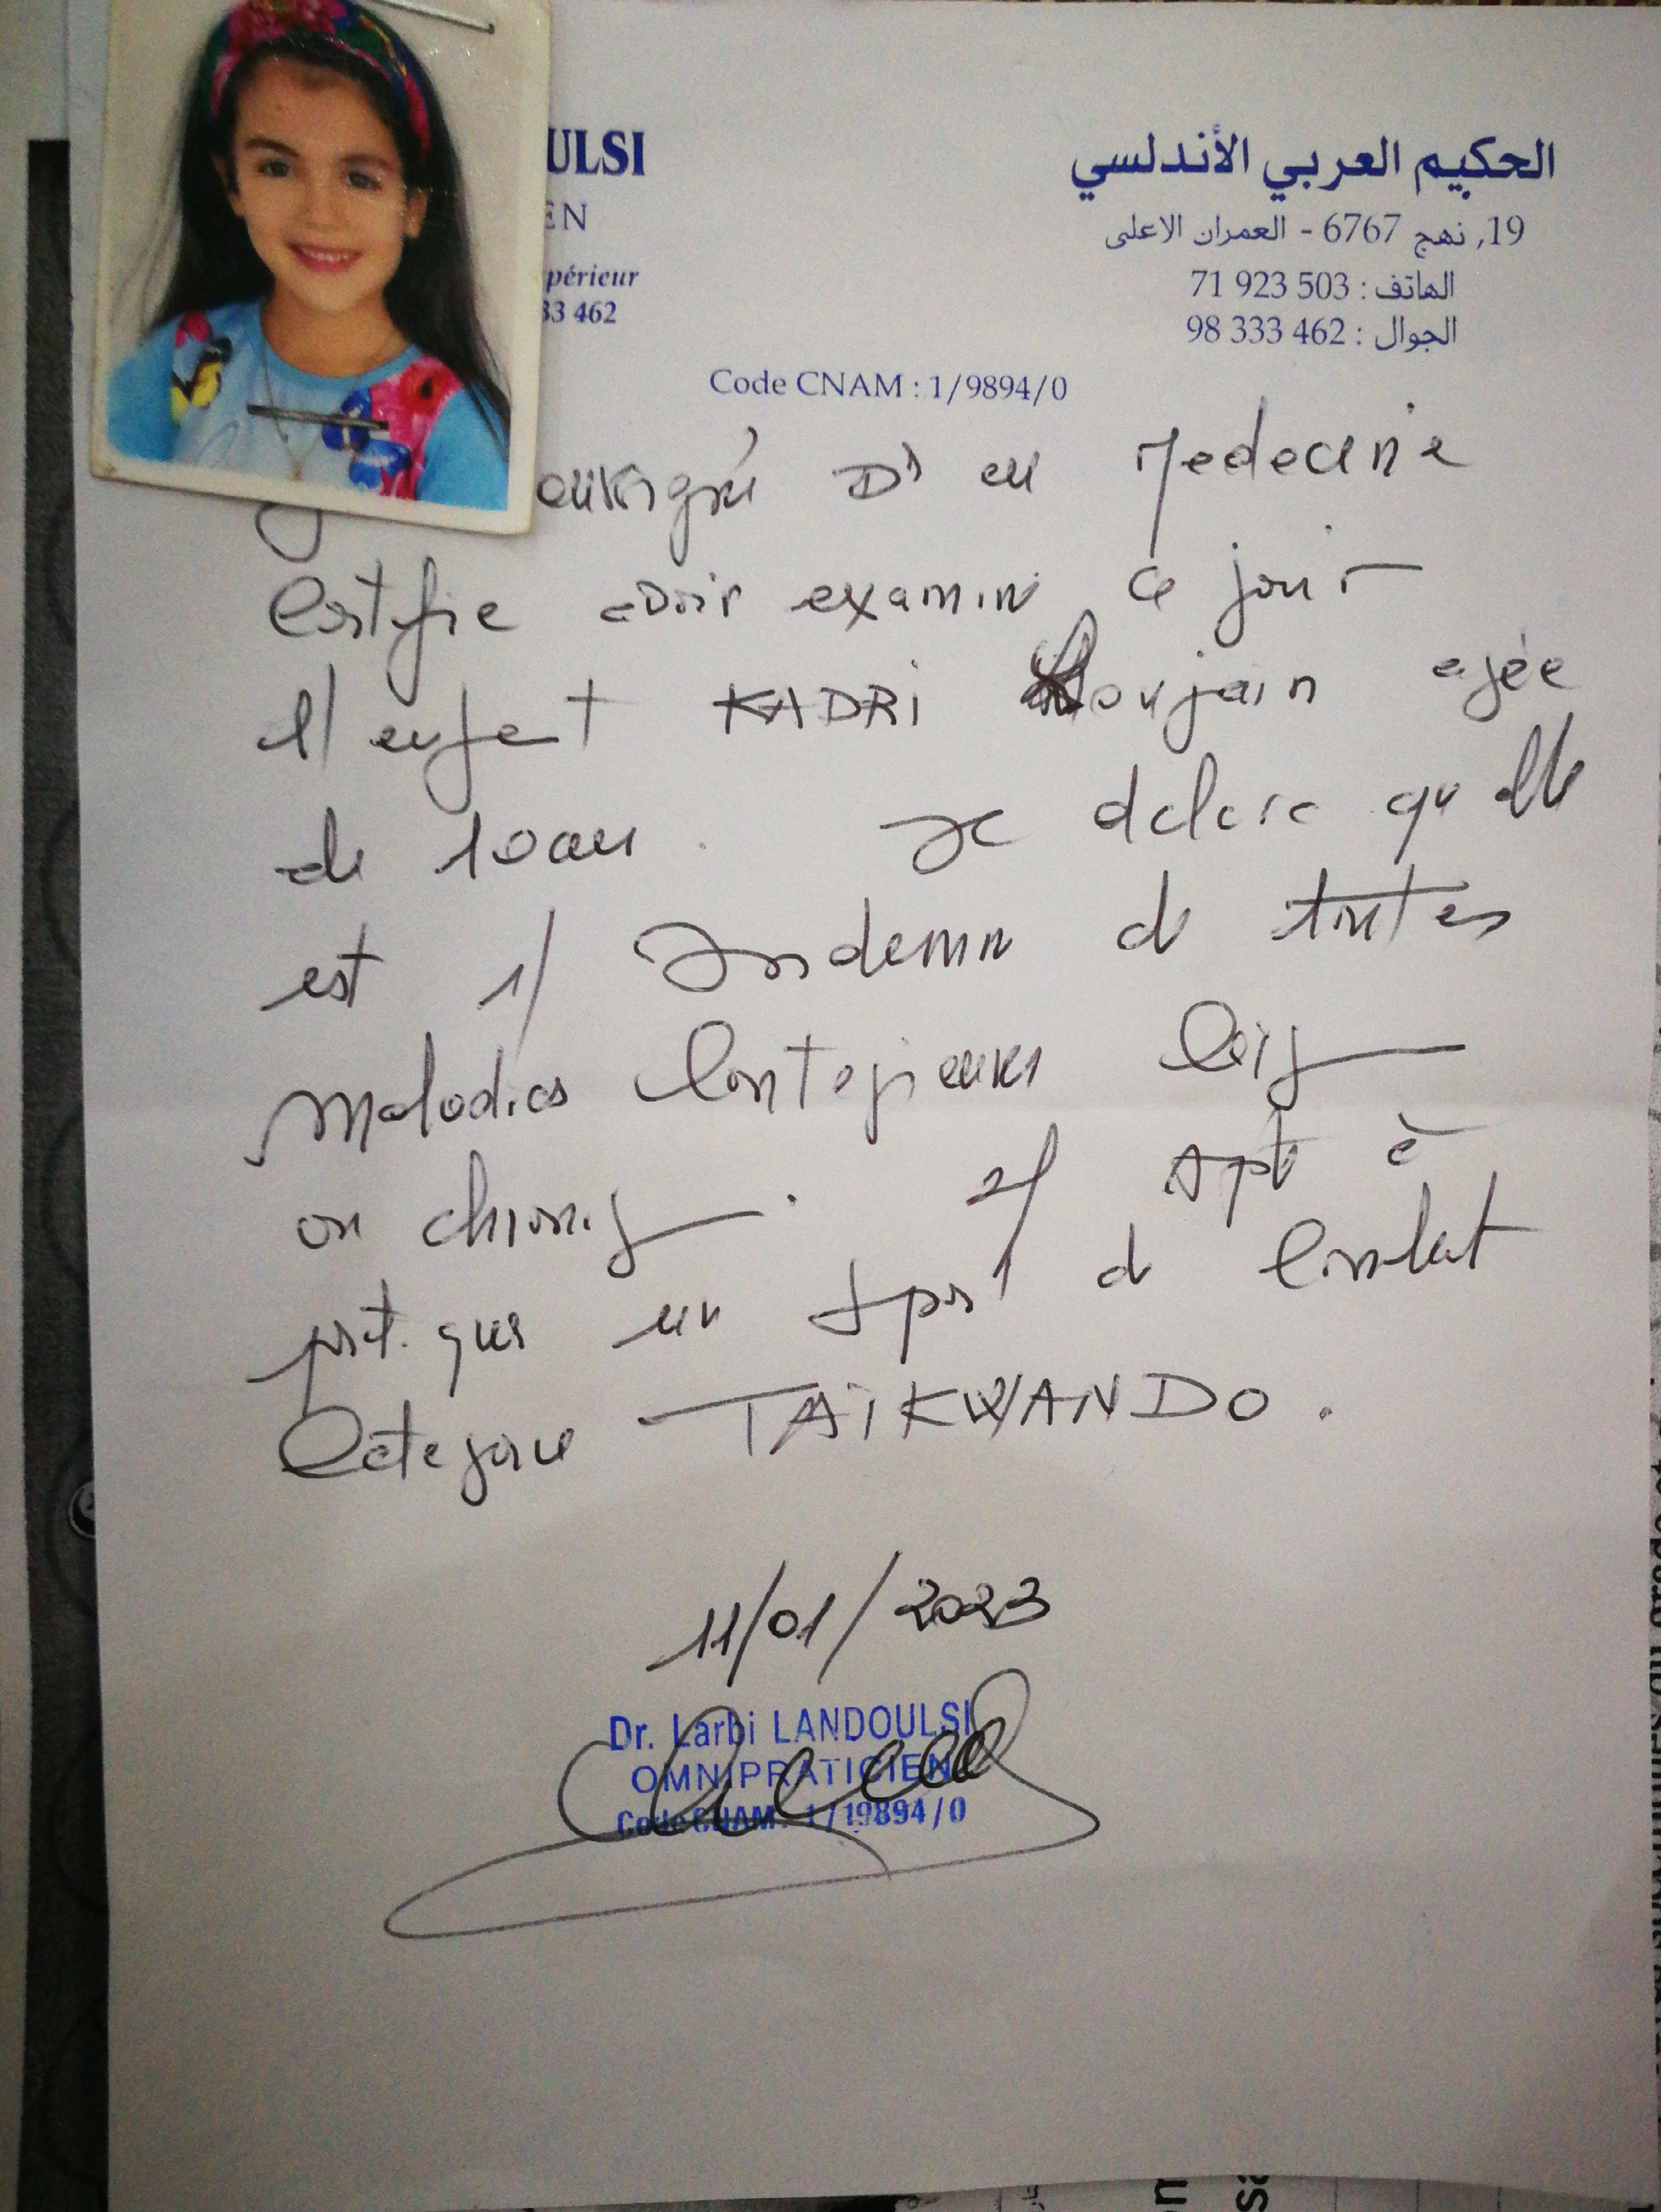 ULSI
EN
périeur
33 462
الحكيم العربي الأندلسي
19, نهج 6767 - العمران الاعلى
الهاتف : 503 923 71
الجوال : 462 333 98
Code CNAM : 1/9894/0
Dr en Medecine
Certifie avoir examiné ce jour
l'enfant KADRI agée
de 10 ans. Je declare qu'elle
est 1/ Indemne de toutes
maladies Contagieuses
ou chroniq. 2/ Apte à
pratiquer un sport de Combat
Categorie TAIKWANDO.
11/01/2023
Dr. Larbi LANDOULSI
OMNIPRATICIEN
Code CNAM : 1/19894/0